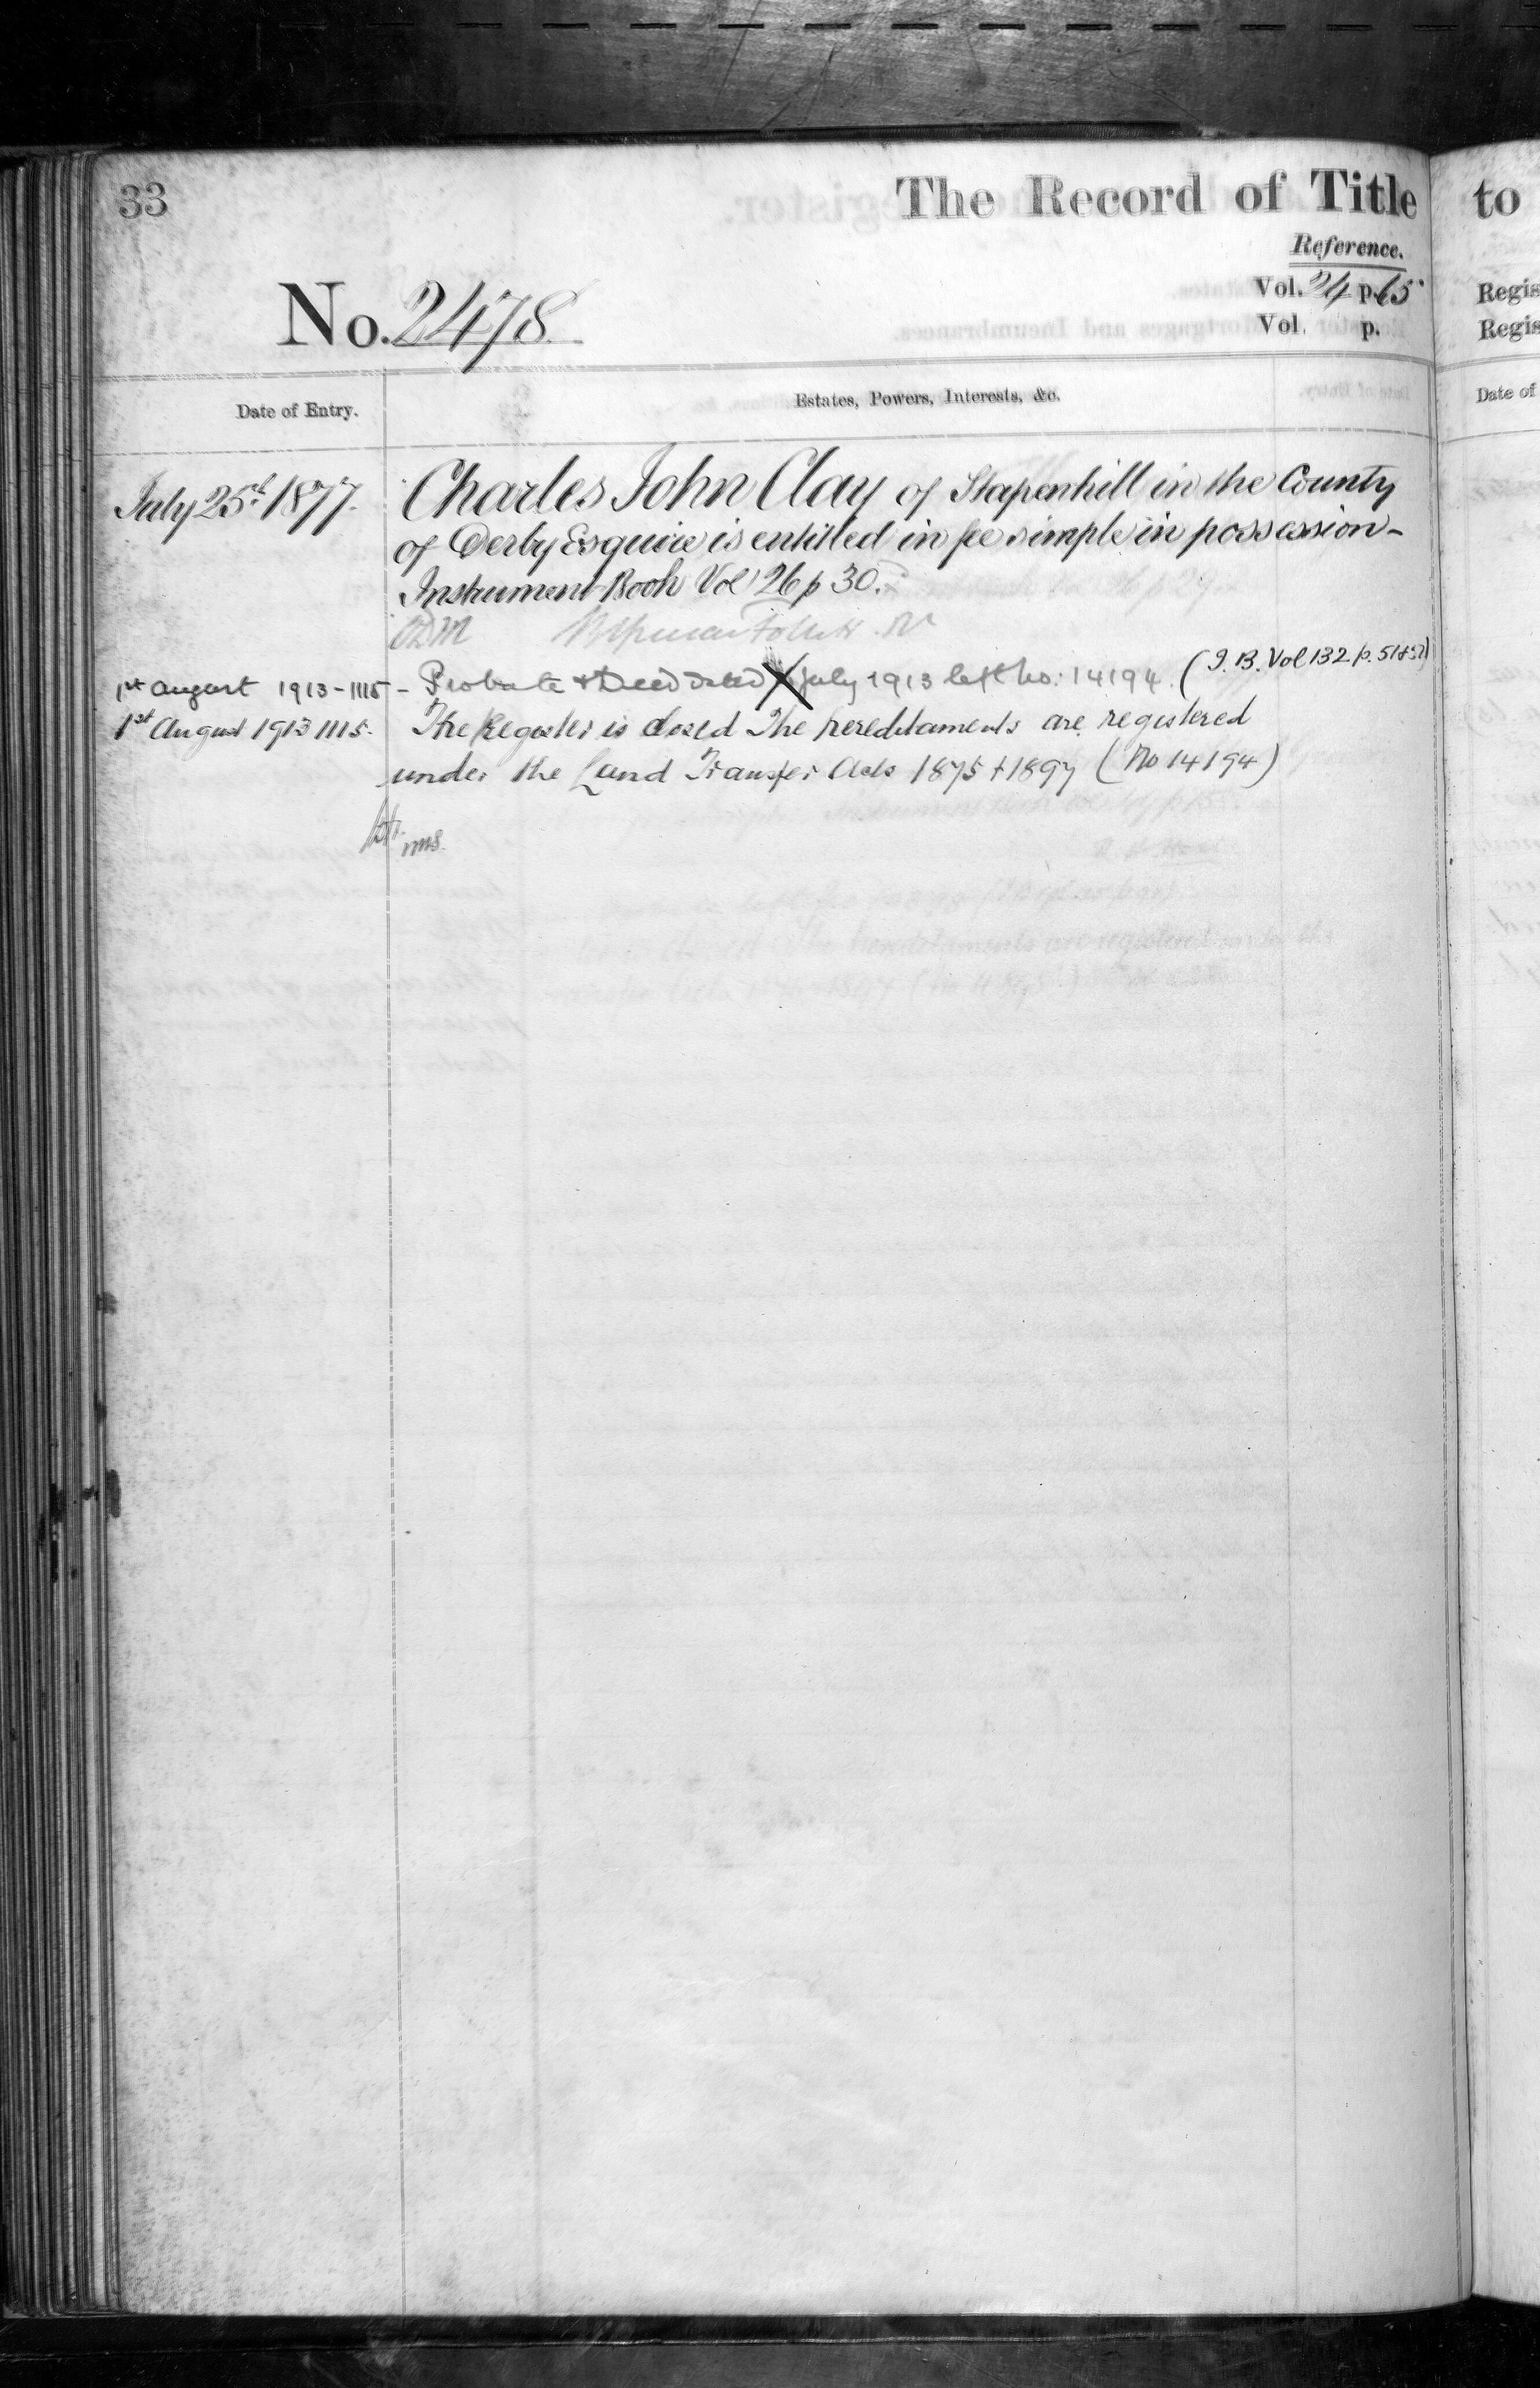 33
The Record of Title to
Reference.
Vol. 24 p. 65 Regis
No. 2478. Vol. p. Regis
Date of Entry. Estates, Powers, Interests, &c. Date of
July 25th 1877. Charles John Clay of Stapenhill in the County
of Derby Esquire is entitled in fee simple in possession -
Instrument Book Vol 26 p 30.
(I.B. Vol 132 p. 51 & 52)
1st August 1913 - 1115 - Probate & Deed dated July 1913 left no: 14194.
1st August 1913 1115. The Register is closed The hereditaments are registered
under the Land Transfer Acts 1875 & 1897 (No 14194)